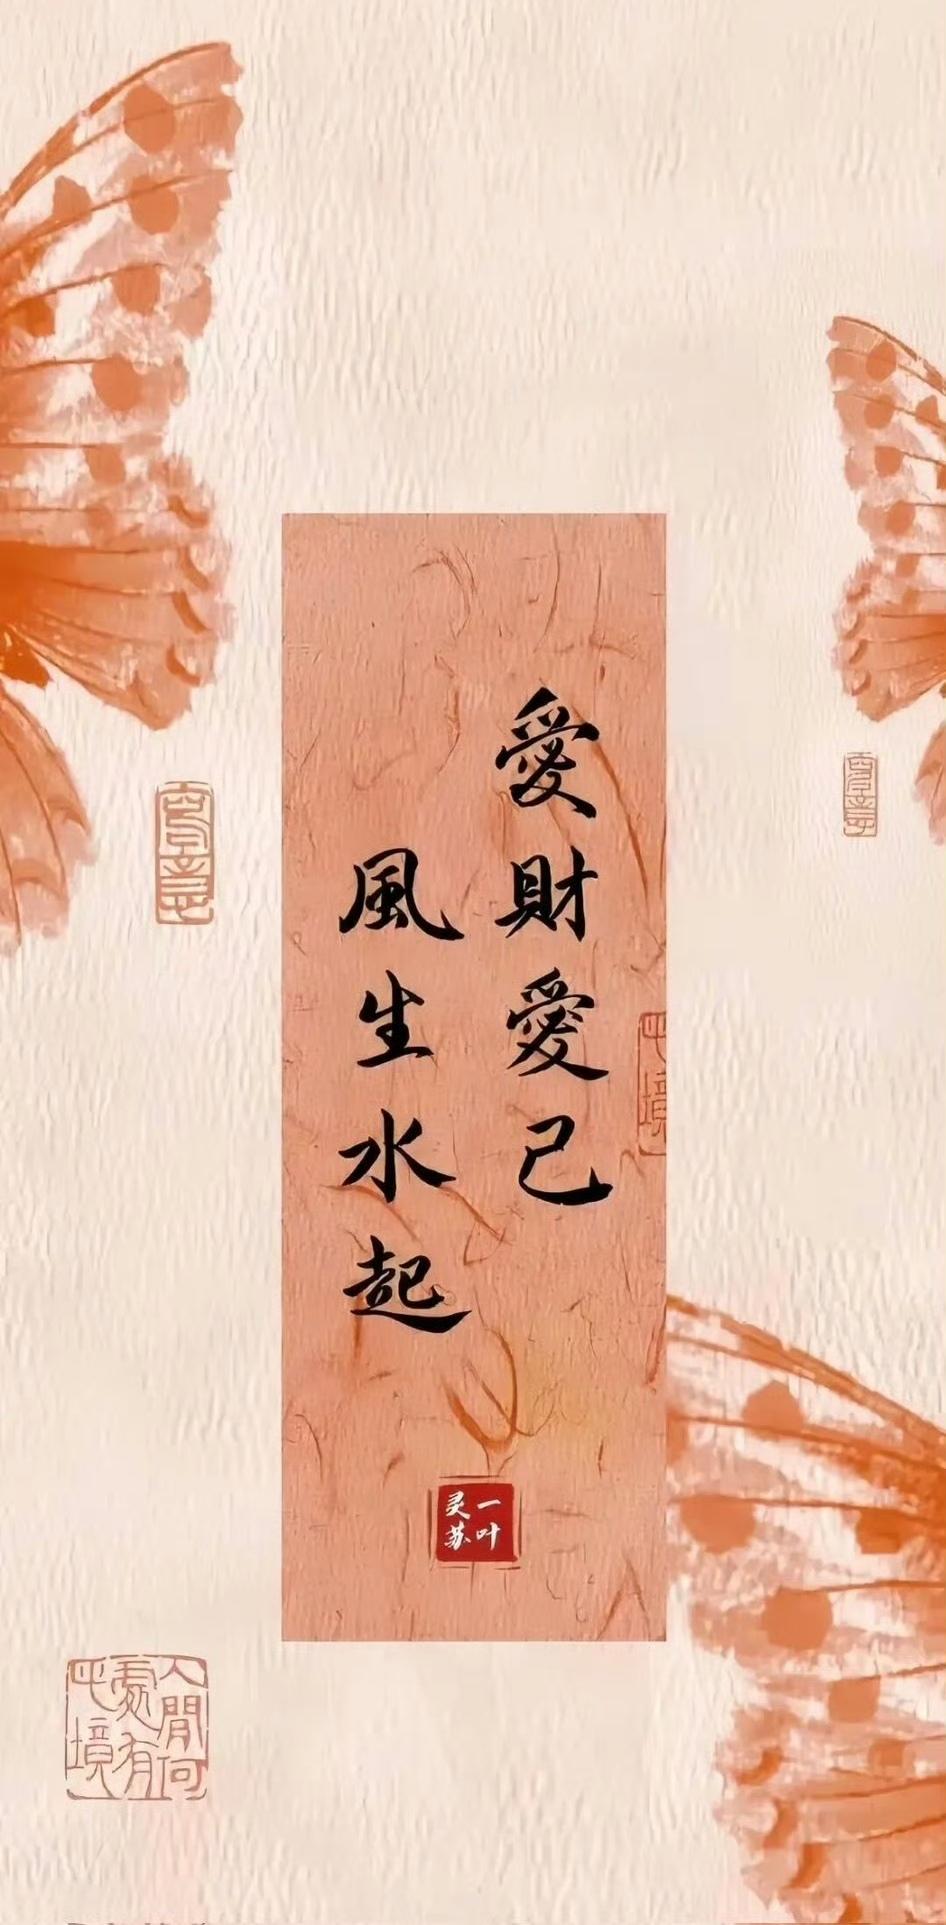 愛財愛己
風生水起
一叶
灵苏
人間何
處有
此境